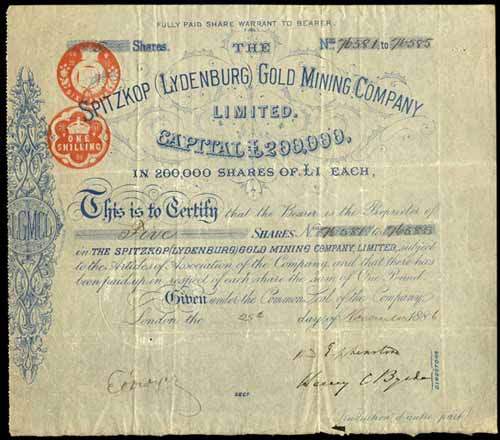 FULLY PAID SHARE WARRANT TO BEARER.
Shares.
THE
Nos 76581 to 76585
SPITZKOP (LYDENBURG) GOLD MINING COMPANY
LIMITED.
ONE
SHILLING
CAPITAL £200,000.
IN 200,000 SHARES OF £1 EACH,
This is to Certify that the Bearer is the Proprietor of
Five SHARES. Nos 76581 to 76585
on THE SPITZKOP (LYDENBURG) GOLD MINING COMPANY, LIMITED, subject
to the Articles of Association of the Company, and that there has
been paid up in respect of each share the sum of One Pound
Given under the Common Seal of the Company,
London the 25th day of November 1886
Henry C
DIRECTORS
SECY